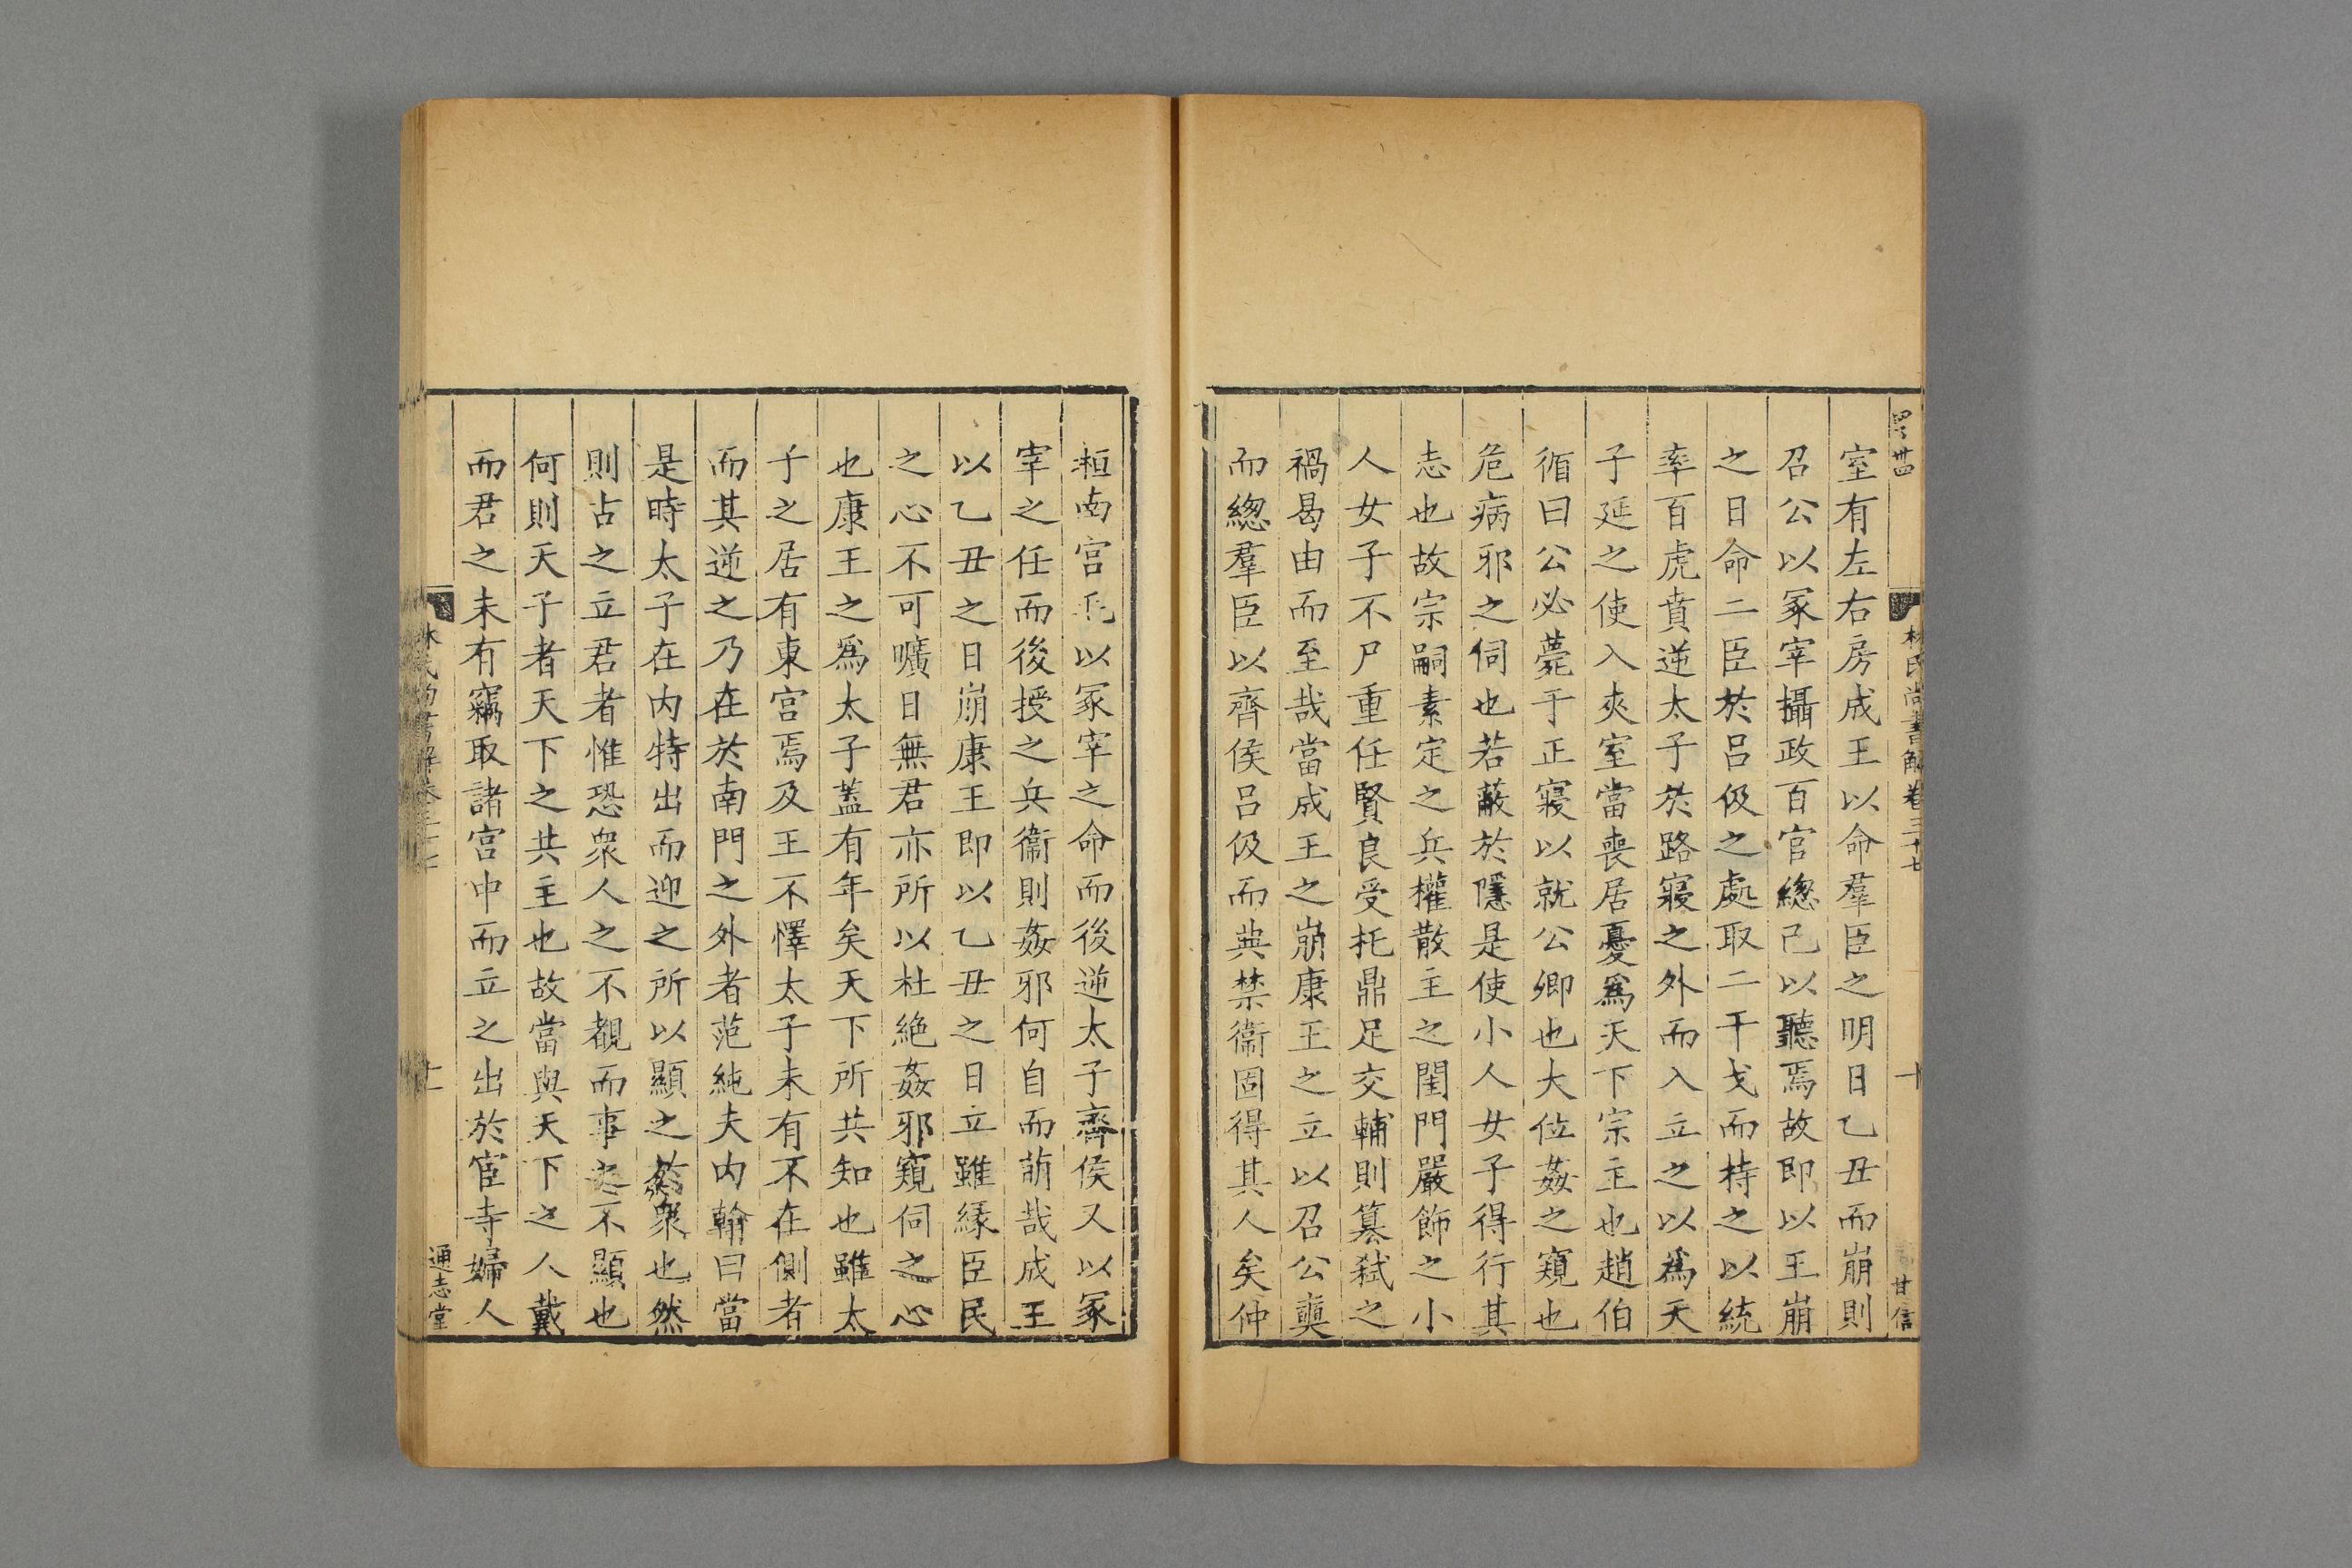 林氏尚書解卷三十七
十
甘信
室有左右房成王以命羣臣之明日乙丑而崩則
召公以冢宰攝政百官緫己以聽焉故即以王崩
之日命二臣於呂伋之處取二干戈而持之以統
率百虎賁逆太子於路寢之外而入立之以爲天
子延之使入夾室當喪居憂爲天下宗主也趙伯
循曰公必薨于正寢以就公卿也大位姦之窺也
危病邪之伺也若蔽於隱是使小人女子得行其
志也故宗嗣素定之兵權散主之閨門嚴飾之小
人女子不尸重任賢良受托鼎足交輔則簒弑之
禍曷由而至哉當成王之崩康王之立以召公奭
而緫羣臣以齊侯呂伋而典禁衞固得其人矣仲
桓南宮毛以冢宰之命而後逆太子齊侯又以冢
宰之任而後授之兵衞則姦邪何自而萌哉成王
以乙丑之日崩康王即以乙丑之日立雖緣臣民
之心不可曠日無君亦所以杜絶姦邪窺伺之心
也康王之爲太子蓋有年矣天下所共知也雖太
子之居有東宮焉及王不懌太子未有不在側者
而其逆之乃在於南門之外者范純夫内翰曰當
是時太子在内特出而迎之所以顯之於衆也然
則古之立君者惟恐衆人之不覩而事之不顯也
何則天子者天下之共主也故當與天下之人戴
而君之未有竊取諸宮中而立之出於宦寺婦人
林氏尚書解卷三十七
十一
通志堂